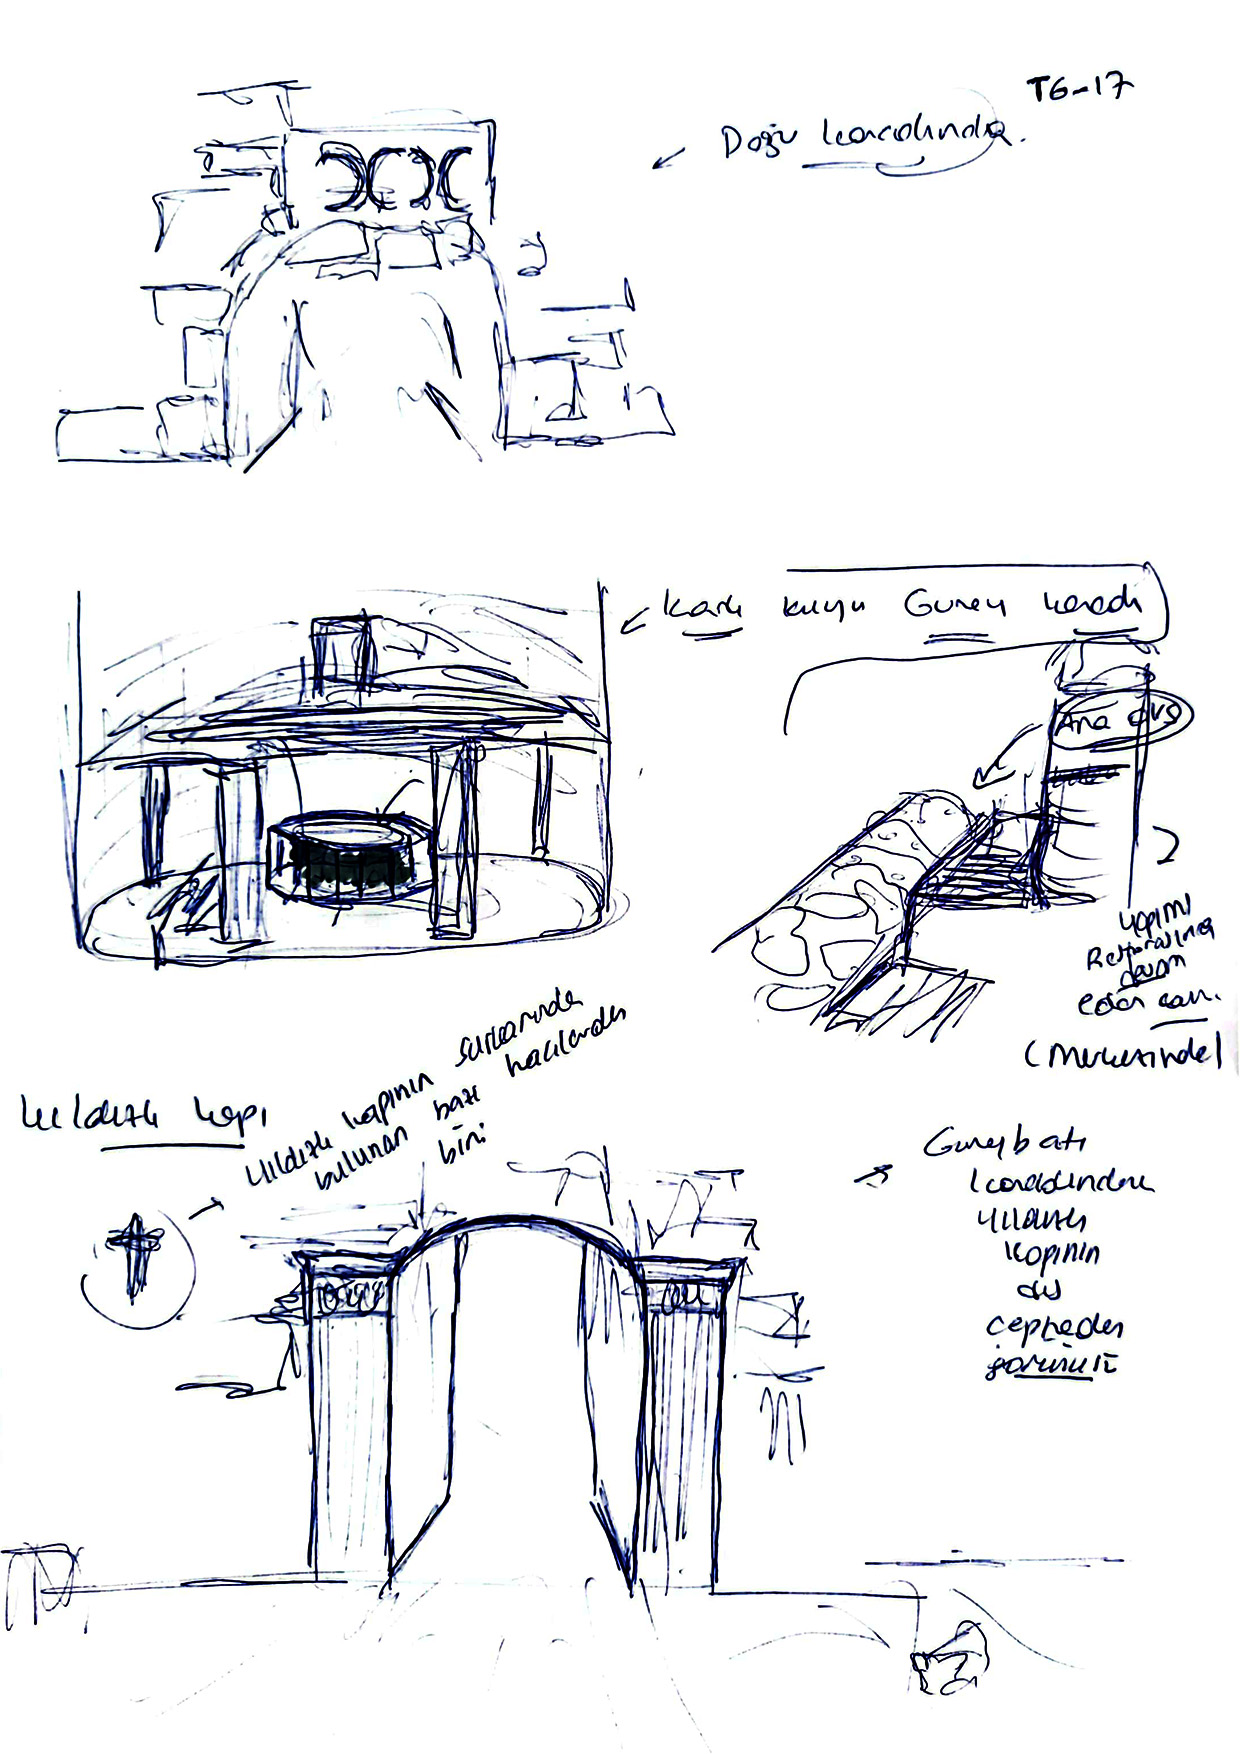 T6-17
Doğu kanadında.
Kanlı kuyu Güney kanadı
Ana giriş
yapımı
devam
eden
(Merkezinde)
Yıldızlı kapı
Yıldızlı kapının surlarında
bulunan bazı haçlardan
biri
Güneybatı
kanadından
yıldızlı
kapının
dış
cepheden
görünüş